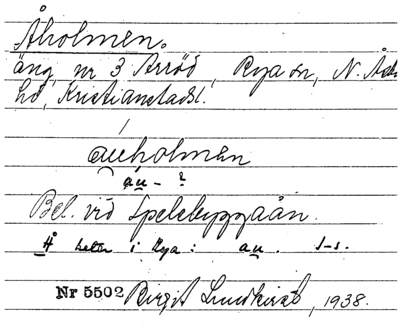 Åholmen.
äng, nr 3 Arröd, Rya sn, N. Åsbo
hd, Kristianstads l.
auholmen
áu - ?
Bel. vid Spelebyggaån.
Å heter i Rya: au. J-s.
Nr 5502 Birgit Lundkvist, 1938.